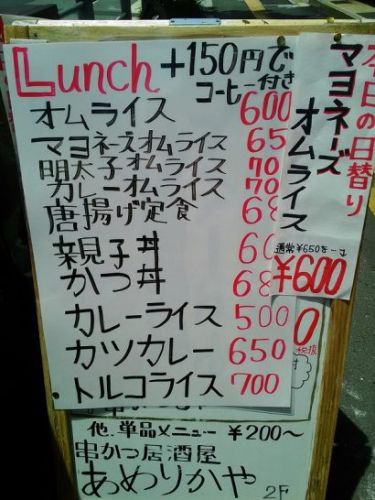 Lunch +150円で
コーヒー付き
オムライス 600
マヨネーズオムライス 65
明太子オムライス 70
カレーオムライス 70
唐揚げ定食 68
親子丼 60
かつ丼 68
カレーライス 500
カツカレー 650
トルコライス 700
本日の日替り
マヨネーズ
オムライス
通常¥650を
¥600
0
他、単品メニュー ¥200〜
串かつ居酒屋
あめりかや 2F